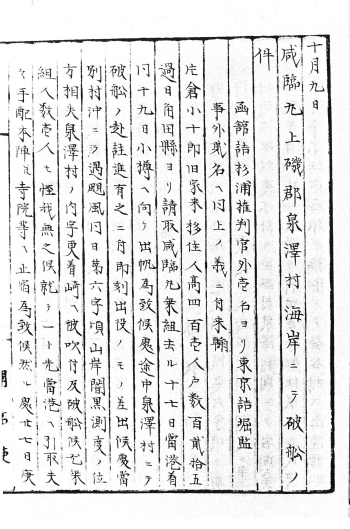 十月九日
咸臨丸上磯郡泉澤村海岸ニテ破船ノ
件
函館詰杉浦推判官外壱名ヨリ東京詰堀監
事外貳名ヘ同上ノ義ニ付来翰
片倉小十郎旧家来移住人高四百壱人戸数百貳拾五
過日角田縣ヨリ請取咸臨丸乗組去ル十七日當港着
同十九日小樽ヘ向ケ出帆為致候處途中泉澤村ニテ
破船ノ趣註進有之ニ付即刻出役ノモノ差出候處當
別村沖ニテ遇颶風同日第六字頃山岸闇黒測度ノ位
方相失泉澤村ノ内字更着崎ヘ被吹付及破船候尤乗
組人数壱人モ怪我無之候就テハ一ト先當港ヘ引取夫
々手配本陣并寺院等ヘ止宿為致候然ル處廿七日庚
開拓使